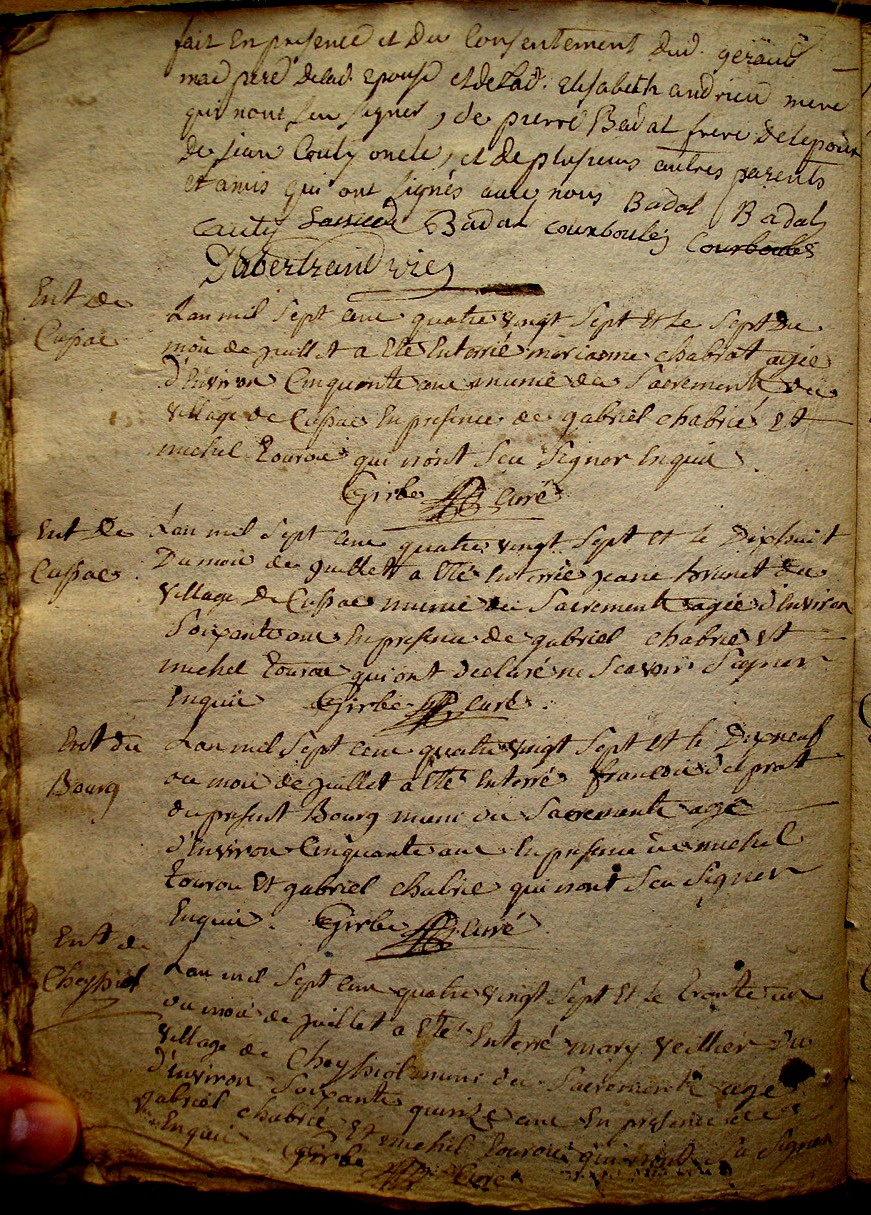 fait En presence et Du Consentement dud. geraud
mas pere de lad. Epouse et de lad. Elisabeth andrieu mere
qui n'ont sçu signer, de pierre Badal frere de lepoux
de jean Couty oncle, et de plusieurs autres parents
et amis qui ont signés avec nous Badal Badal
Couty Badal Courboulés Courboulés
Dabertrand vic
Ent de
Cussac
Lan mil sept cent quatre vingt sept et le sept du
mois de juillet a eté Enterrée marianne chabrat agée
d'Environ Cinquante ans munie des Sacrements du
village de Cussac En presence de gabriel chabrié Et
michel Tourou qui n'ont sçu signer Enquis
Girbe Curé
Ent de
Cussac
Lan mil sept cent quatre vingt sept et le Dixhuit
Du mois de juillet a eté Enterrée jeane brunet du
village de Cussac munie des Sacrements agée d'Environ
soixante ans En presence de gabriel chabrié et
michel Tourou qui ont declaré ne sçavoir signer
Enquis Girbe Curé
Ent du
Bourg
Lan mil sept cent quatre vingt sept et le Dixneuf
du mois de juillet a eté Enterré francois delprat
du present Bourg muni des Sacrements agé
d'Environ Cinquante ans En presence de michel
Tourou et gabriel chabrié qui n'ont sçu signer
Enquis. Girbe Curé
Ent de
Cheyssiol
Lan mil sept cent quatre vingt sept et le trente un
du mois de juillet a eté Enterré mary veillier Du
village de Cheyssiol muni des Sacrements agé
d'Environ soixante quinze ans En presence de
gabriel chabrié et michel Tourou qui n'ont sçu signer
Enquis Girbe Curé